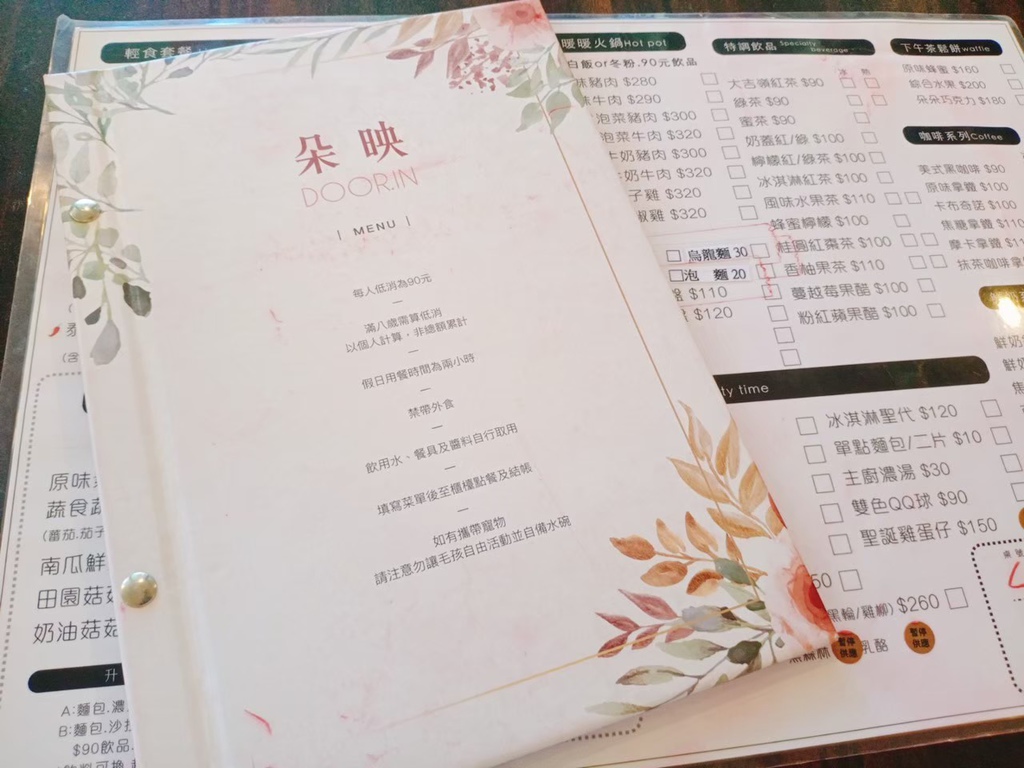 朵映
DOOR.IN
| MENU |
每人低消為90元
滿八歲需算低消
以個人計算，非總額累計
假日用餐時間為兩小時
禁帶外食
飲用水、餐具及醬料自行取用
填寫菜單後至櫃檯點餐及結帳
如有攜帶寵物
請注意勿讓毛孩自由活動並自備水碗
輕食套餐
原味
蔬食蔬
(蕃茄.茄子
南瓜鮮
田園菇菇
奶油菇菇
升
A:麵包.濃
B:麵包.沙拉
$90飲品
暖暖火鍋Hot pot
白飯or冬粉.90元飲品
味豬肉 $280
味牛肉 $290
泡菜豬肉 $300
泡菜牛肉 $320
牛奶豬肉 $300
牛奶牛肉 $320
子雞 $320
椒雞 $320
烏龍麵 30
泡 麵 20
$110
$120
特調飲品 Specialty beverage
冰 熱
大吉嶺紅茶 $90
綠茶 $90
蜜茶 $90
奶蓋紅/綠 $100
檸檬紅/綠茶 $100
冰淇淋紅茶 $100
風味水果茶 $110
蜂蜜檸檬 $100
桂圓紅棗茶 $100
香柚果茶 $110
蔓越莓果醋 $100
粉紅蘋果醋 $100
下午茶鬆餅waffle
原味蜂蜜 $160
綜合水果 $200
朵朵巧克力 $180
咖啡系列Coffee
美式黑咖啡 $90
原味拿鐵 $100
卡布奇諾 $100
焦糖拿鐵 $110
摩卡拿鐵 $11
抹茶咖啡拿
鮮奶
鮮奶
焦
ty time
冰淇淋聖代 $120
單點麵包/二片 $10
主廚濃湯 $30
雙色QQ球 $90
聖誕雞蛋仔 $150
50
黑輪/雞柳) $260
乳酪
暫停
供應
暫停
供應
桌號